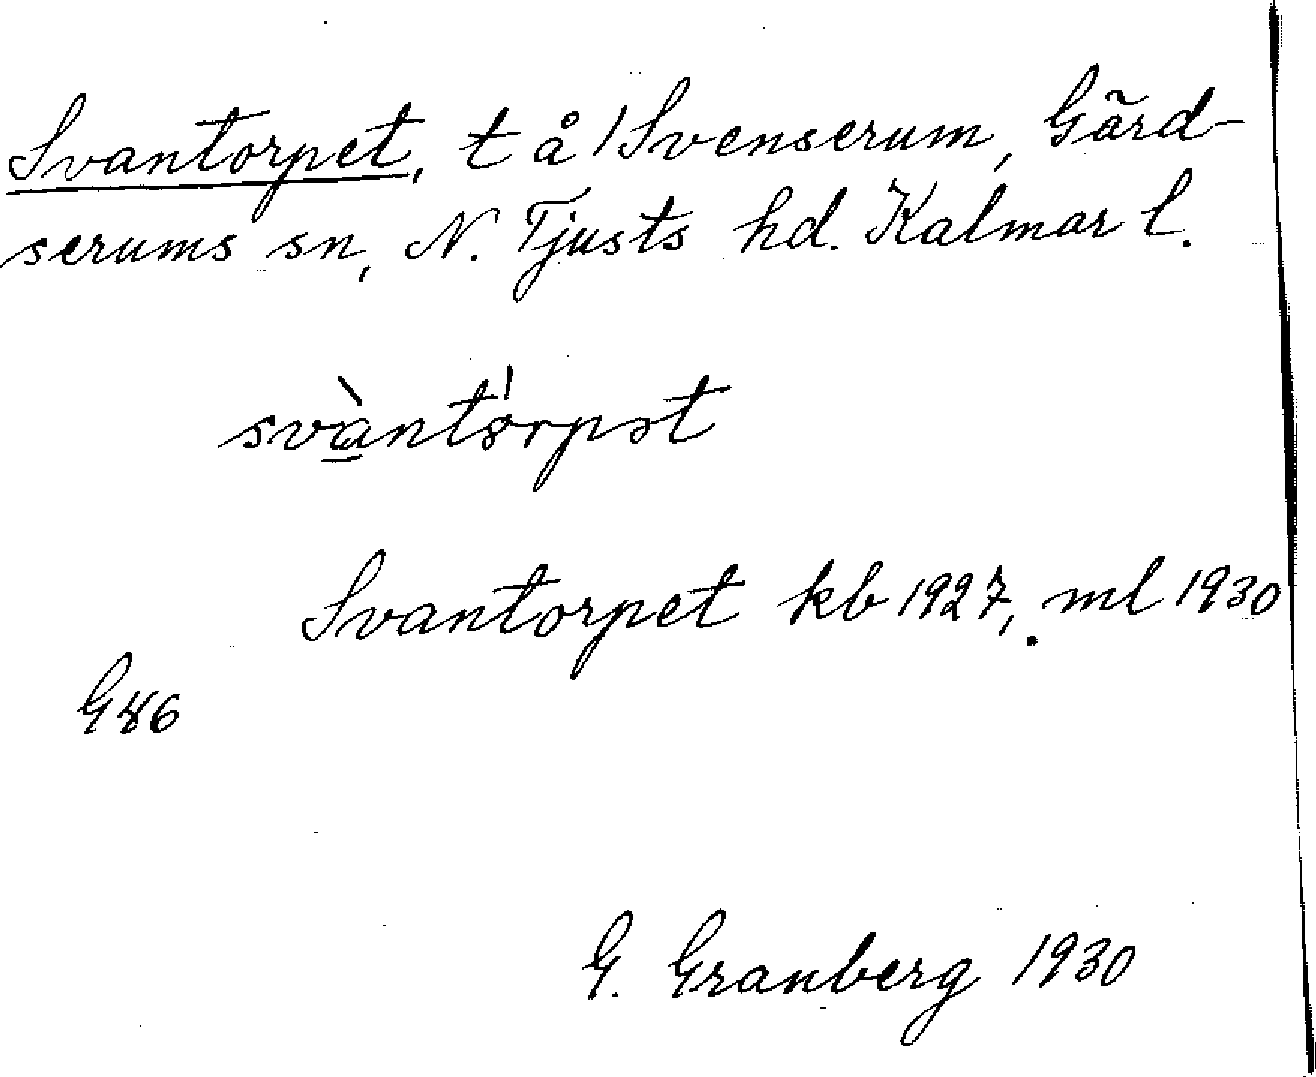 Svantorpet, t å 1 Svenserum, Gärd-
serums sn, N. Tjusts hd. Kalmar l.
svàntórpət
Svantorpet kb 1927, ml 1930
G 86
G. Granberg 1930